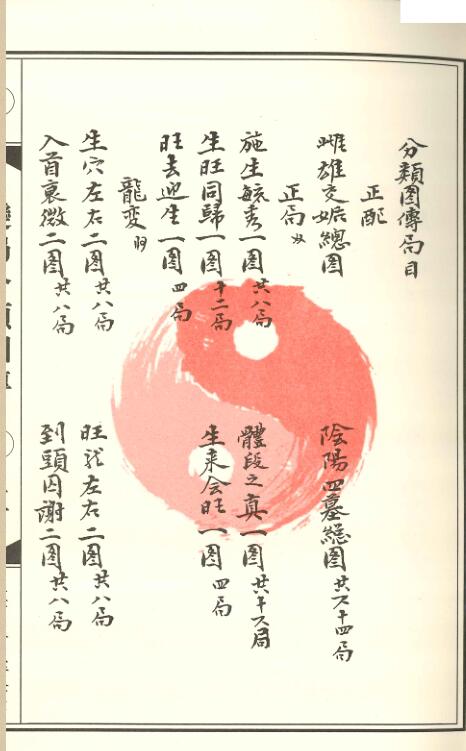 分類图傳局目
正配
雌雄交媾總图
陰陽四墓總图 共六十四局
正局
施生毓秀一图 共八局
體段之真一图 共十六局
生旺同歸一图 十二局
生来会旺一图 四局
旺去迎生一图 四局
龍变
生穴左右二图 共八局
旺龙左右二图 共八局
入首裏微二图 共八局
到頭囚謝二图 共八局